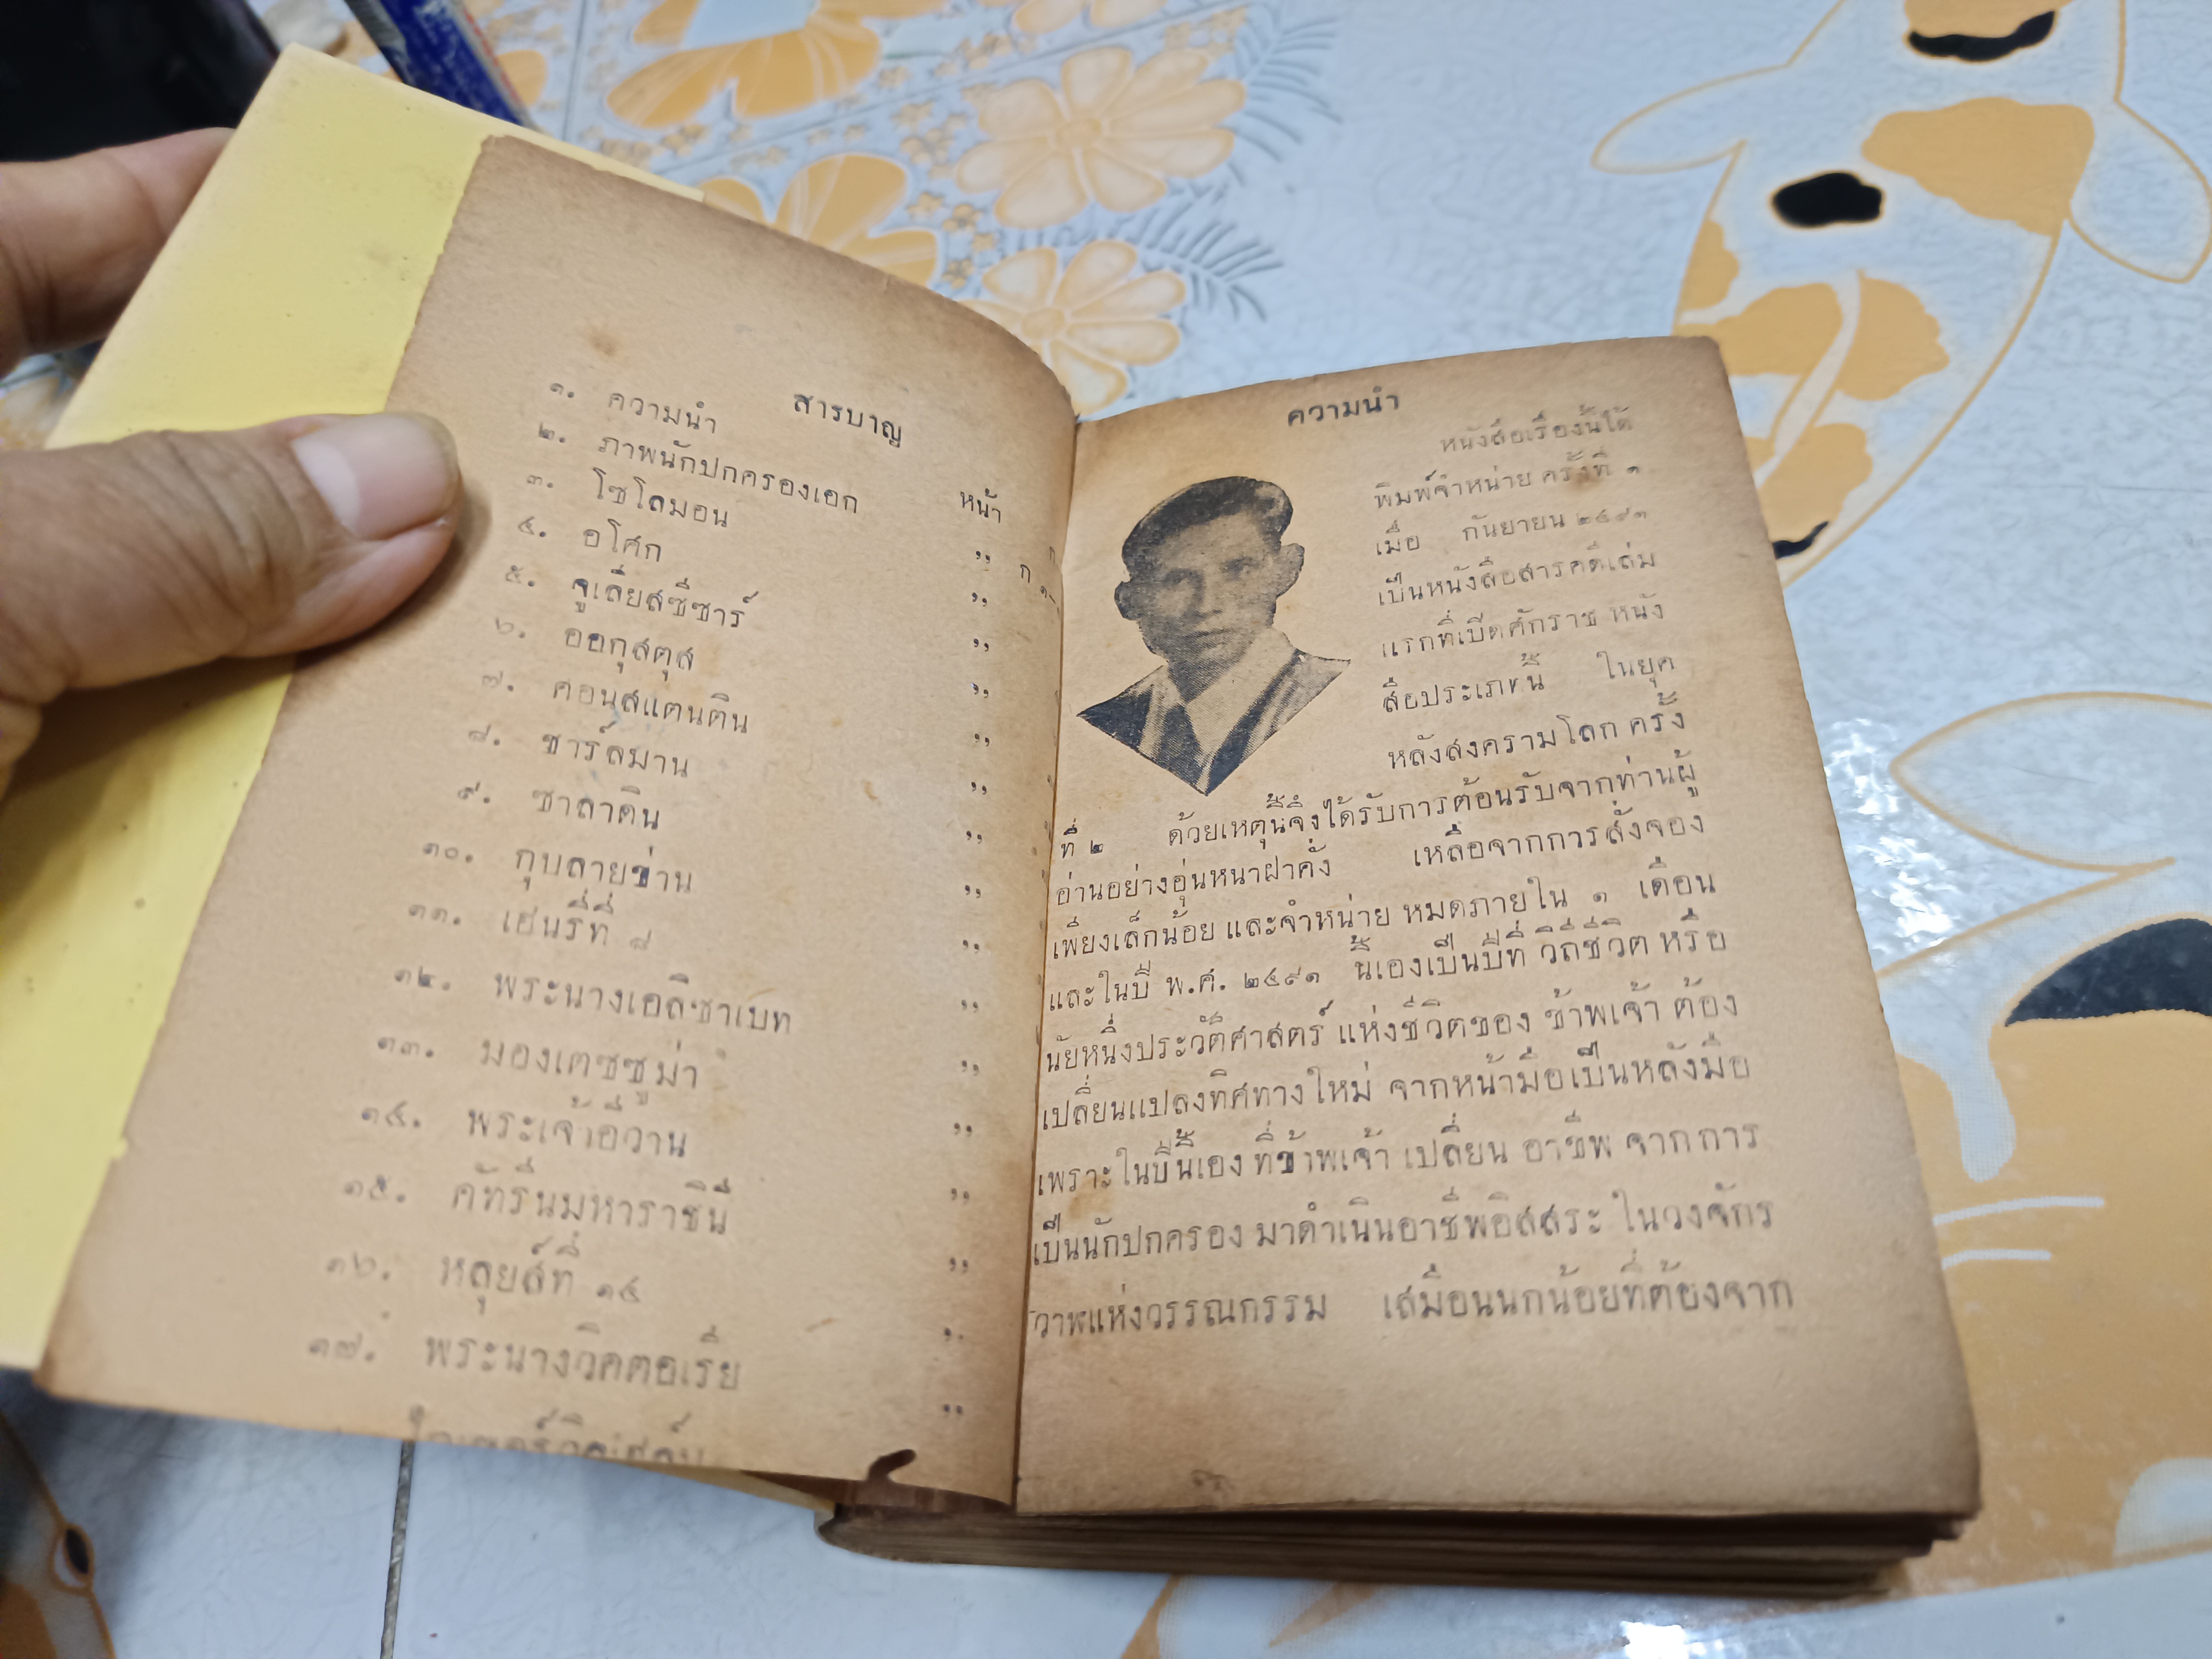 สารบาญ
หน้า
๑. ความนำ ,, ก
๒. ภาพนักปกครองเอก ,, ก
๓. โซโลมอน ,,
๔. อโศก ,,
๕. จูเลียสซีซาร์ ,,
๖. ออกุสตุส ,,
๗. คอนสแตนติน ,,
๘. ชาร์ลมาน ,,
๙. ซาลาดิน ,,
๑๐. กุบลายข่าน ,,
๑๑. เฮนรี่ที่ ๘ ,,
๑๒. พระนางเอลิซาเบท ,,
๑๓. มองเตซซูม่า ,,
๑๔. พระเจ้าอีวาน ,,
๑๕. คัทรีนมหาราชินี ,,
๑๖. หลุยส์ที่ ๑๔ ,,
๑๗. พระนางวิคตอเรีย ,,
ความนำ
หนังสือเรื่องนี้ได้
พิมพ์จำหน่าย ครั้งที่ ๑
เมื่อ กันยายน ๒๔๙๑
เป็นหนังสือสารคดีเล่ม
แรกที่เบิดศักราช หนัง
สือประเภทนี้ ในยุค
หลังสงครามโลก ครั้ง
ที่ ๒ ด้วยเหตุนี้จึงได้รับการต้อนรับจากท่านผู้
อ่านอย่างอุ่นหนาฝาคั่ง เหลือจากการสั่งจอง
เพียงเล็กน้อย และจำหน่าย หมดภายใน ๑ เดือน
และในปี พ.ศ. ๒๔๙๑ นี้เองเป็นปีที่ วิถีชีวิต หรือ
นัยหนึ่งประวัติศาสตร์ แห่งชีวิตของ ข้าพเจ้า ต้อง
เปลี่ยนแปลงทิศทางใหม่ จากหน้ามือเป็นหลังมือ
เพราะในปีนี้เอง ที่ข้าพเจ้า เปลี่ยน อาชีพ จากการ
เป็นนักปกครอง มาดำเนินอาชีพอิสสระ ในวงจักร
วาฬแห่งวรรณกรรม เสมือนนกน้อยที่ต้องจาก